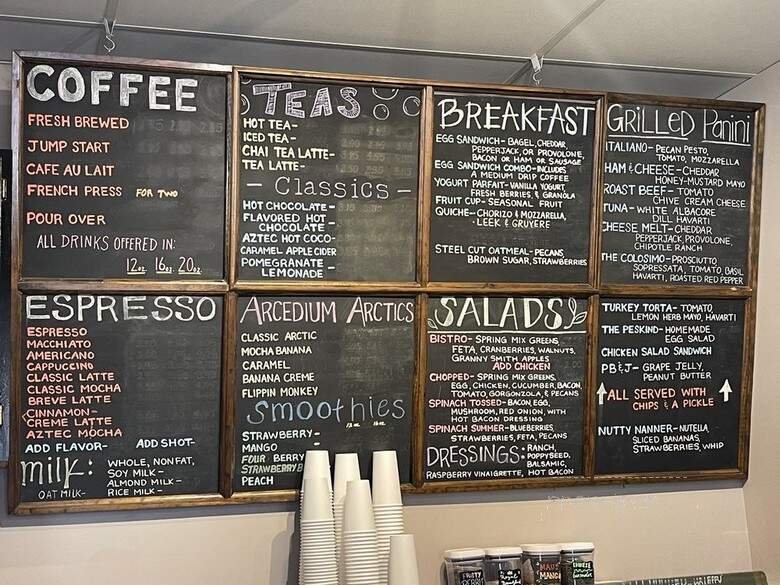 COFFEE
FRESH BREWED
JUMP START
CAFE AU LAIT
FRENCH PRESS FOR TWO
POUR OVER
ALL DRINKS OFFERED IN:
12oz. 16oz. 20oz.
TEAS
HOT TEA-
ICED TEA-
CHAI TEA LATTE-
TEA LATTE-
- Classics -
HOT CHOCOLATE-
FLAVORED HOT
CHOCOLATE-
AZTEC HOT COCO-
CARAMEL APPLE CIDER
POMEGRANATE
LEMONADE-
BREAKFAST
EGG SANDWICH- BAGEL, CHEDDAR,
PEPPERJACK, OR PROVOLONE,
BACON OR HAM OR SAUSAGE
EGG SANDWICH COMBO-INCLUDES
A MEDIUM DRIP COFFEE
YOGURT PARFAIT-VANILLA YOGURT,
FRESH BERRIES, & GRANOLA
FRUIT CUP-SEASONAL FRUIT
QUICHE-CHORIZO & MOZZARELLA,
-LEEK & GRUYERE
STEEL CUT OATMEAL-PECANS
BROWN SUGAR, STRAWBERRIES
GRILLED Panini
ITALIANO- PECAN PESTO,
TOMATO, MOZZARELLA
HAM & CHEESE-CHEDDAR
HONEY-MUSTARD MAYO
ROAST BEEF- TOMATO
CHIVE CREAM CHEESE
TUNA- WHITE ALBACORE
DILL HAVARTI
CHEESE MELT-CHEDDAR
PEPPERJACK, PROVOLONE,
CHIPOTLE RANCH
THE COLOSIMO-PROSCIUTTO
SOPRESSATA, TOMATO, BASIL
HAVARTI, ROASTED RED PEPPER
ESPRESSO
ESPRESSO
MACCHIATO
AMERICANO
CAPPUCCINO
CLASSIC LATTE
CLASSIC MOCHA
BREVE LATTE
CINNAMON-
CREME LATTE
AZTEC MOCHA
ADD FLAVOR- ADD SHOT-
milk: WHOLE, NONFAT,
SOY MILK-
ALMOND MILK-
OAT MILK- RICE MILK-
ARCEDIUM ARCTICS
CLASSIC ARCTIC
MOCHA BANANA
CARAMEL
BANANA CREME
FLIPPIN MONKEY
Smoothies
12oz 16oz
STRAWBERRY-
MANGO
FOUR BERRY
STRAWBERRY B
PEACH
SALADS
BISTRO- SPRING MIX GREENS,
FETA, CRANBERRIES, WALNUTS,
GRANNY SMITH APPLES
ADD CHICKEN
CHOPPED- SPRING MIX GREENS,
EGG, CHICKEN, CUCUMBER, BACON,
TOMATO, GORGONZOLA, & PECANS
SPINACH TOSSED-BACON, EGG,
MUSHROOM, RED ONION, WITH
HOT BACON DRESSING
SPINACH SUMMER-BLUEBERRIES,
STRAWBERRIES, FETA, PECANS
DRESSINGS: RANCH,
POPPYSEED,
BALSAMIC,
RASPBERRY VINAIGRETTE, HOT BACON
TURKEY TORTA- TOMATO,
LEMON HERB MAYO, HAVARTI
THE PESKIND-HOMEMADE
EGG SALAD
CHICKEN SALAD SANDWICH
PB&J- GRAPE JELLY,
PEANUT BUTTER
ALL SERVED WITH
CHIPS & A PICKLE
NUTTY NANNER-NUTELLA,
SLICED BANANAS,
STRAWBERRIES, WHIP